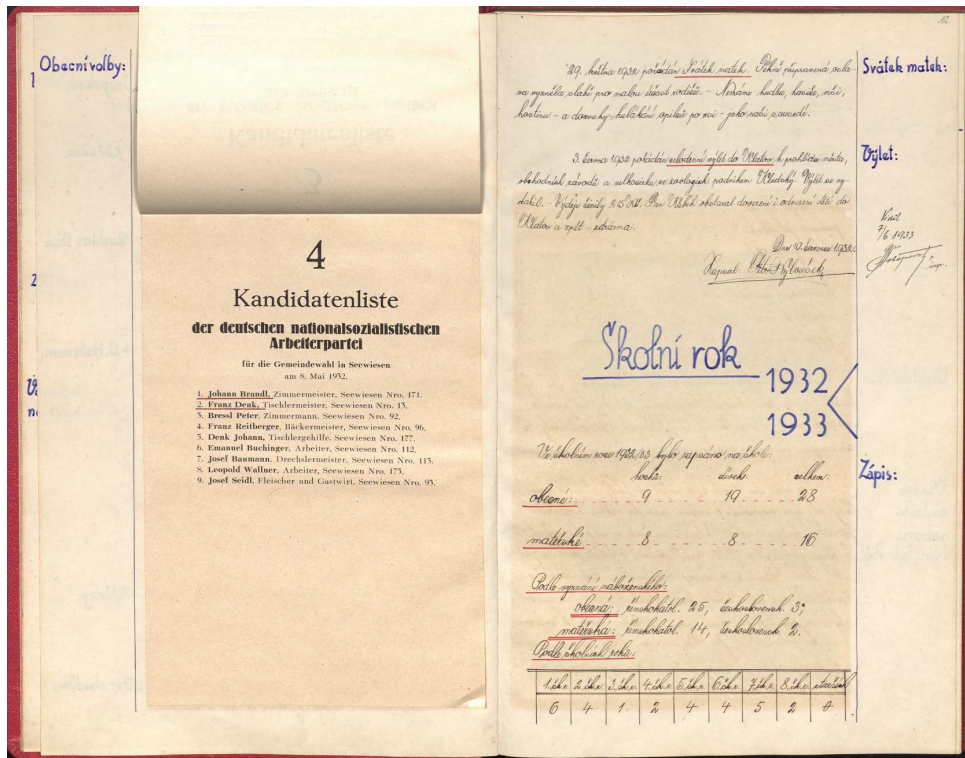 Obecní volby:
4
Kandidatenliste
der deutschen nationalsozialistischen
Arbeiterpartei
für die Gemeindewahl in Seewiesen
am 8. Mai 1932.
1. Johann Brandl, Zimmermeister, Seewiesen Nro. 171,
2. Franz Denk, Tischlermeister, Seewiesen Nro. 13,
3. Bressl Peter, Zimmermann, Seewiesen Nro. 92,
4. Franz Reitberger, Bäckermeister, Seewiesen Nro. 96,
5. Denk Johann, Tischlergehilfe, Seewiesen Nro. 177,
6. Emanuel Buchinger, Arbeiter, Seewiesen Nro. 112,
7. Josef Baumann, Drechslermeister, Seewiesen Nro. 113,
8. Leopold Wallner, Arbeiter, Seewiesen Nro. 173,
9. Josef Seidl, Fleischer und Gastwirt, Seewiesen Nro. 93.
29. května 1932 pořádán Svátek matek. Pěkně připravená osla-
va vyzněla slabě pro malou účast rodičů. - Nemáme hudbu, hasiče,
hostinu - a do - hulákání opilců po vsi - jako naši sousedé.
Svátek matek:
3. června 1932 pořádán celodenní výlet do Klatov k prohlídce města,
obchodních závodů a velkocirku se zoologick. podnikem Kludský. Výlet se vy-
dařil. - Výdaje činily Kč. Pan obstaral dovezení i odvezení dětí do
Klatov a zpět - zdarma.
Výlet:
Dne 10. července 1932.
Zapsal:
7/6 1933
Školní rok 1932
1933
Ve školním roce 1932/33 bylo zapsáno na škole:
Zápis:
hochů: dívek: celkem:
obecné: 9 19 28
mateřské 8 8 16
Podle vyznání náboženského:
obecná: římskokatol. 25, československ. 3;
mateřská: římskokatol. 14, československ 2.
Podle školních roků:
1. šk.r. 2. šk.r. 3. šk.r. 4. šk.r. 5. šk.r. 6. šk.r. 7. šk.r. 8. šk.r.
6 4 1 2 4 4 5 2